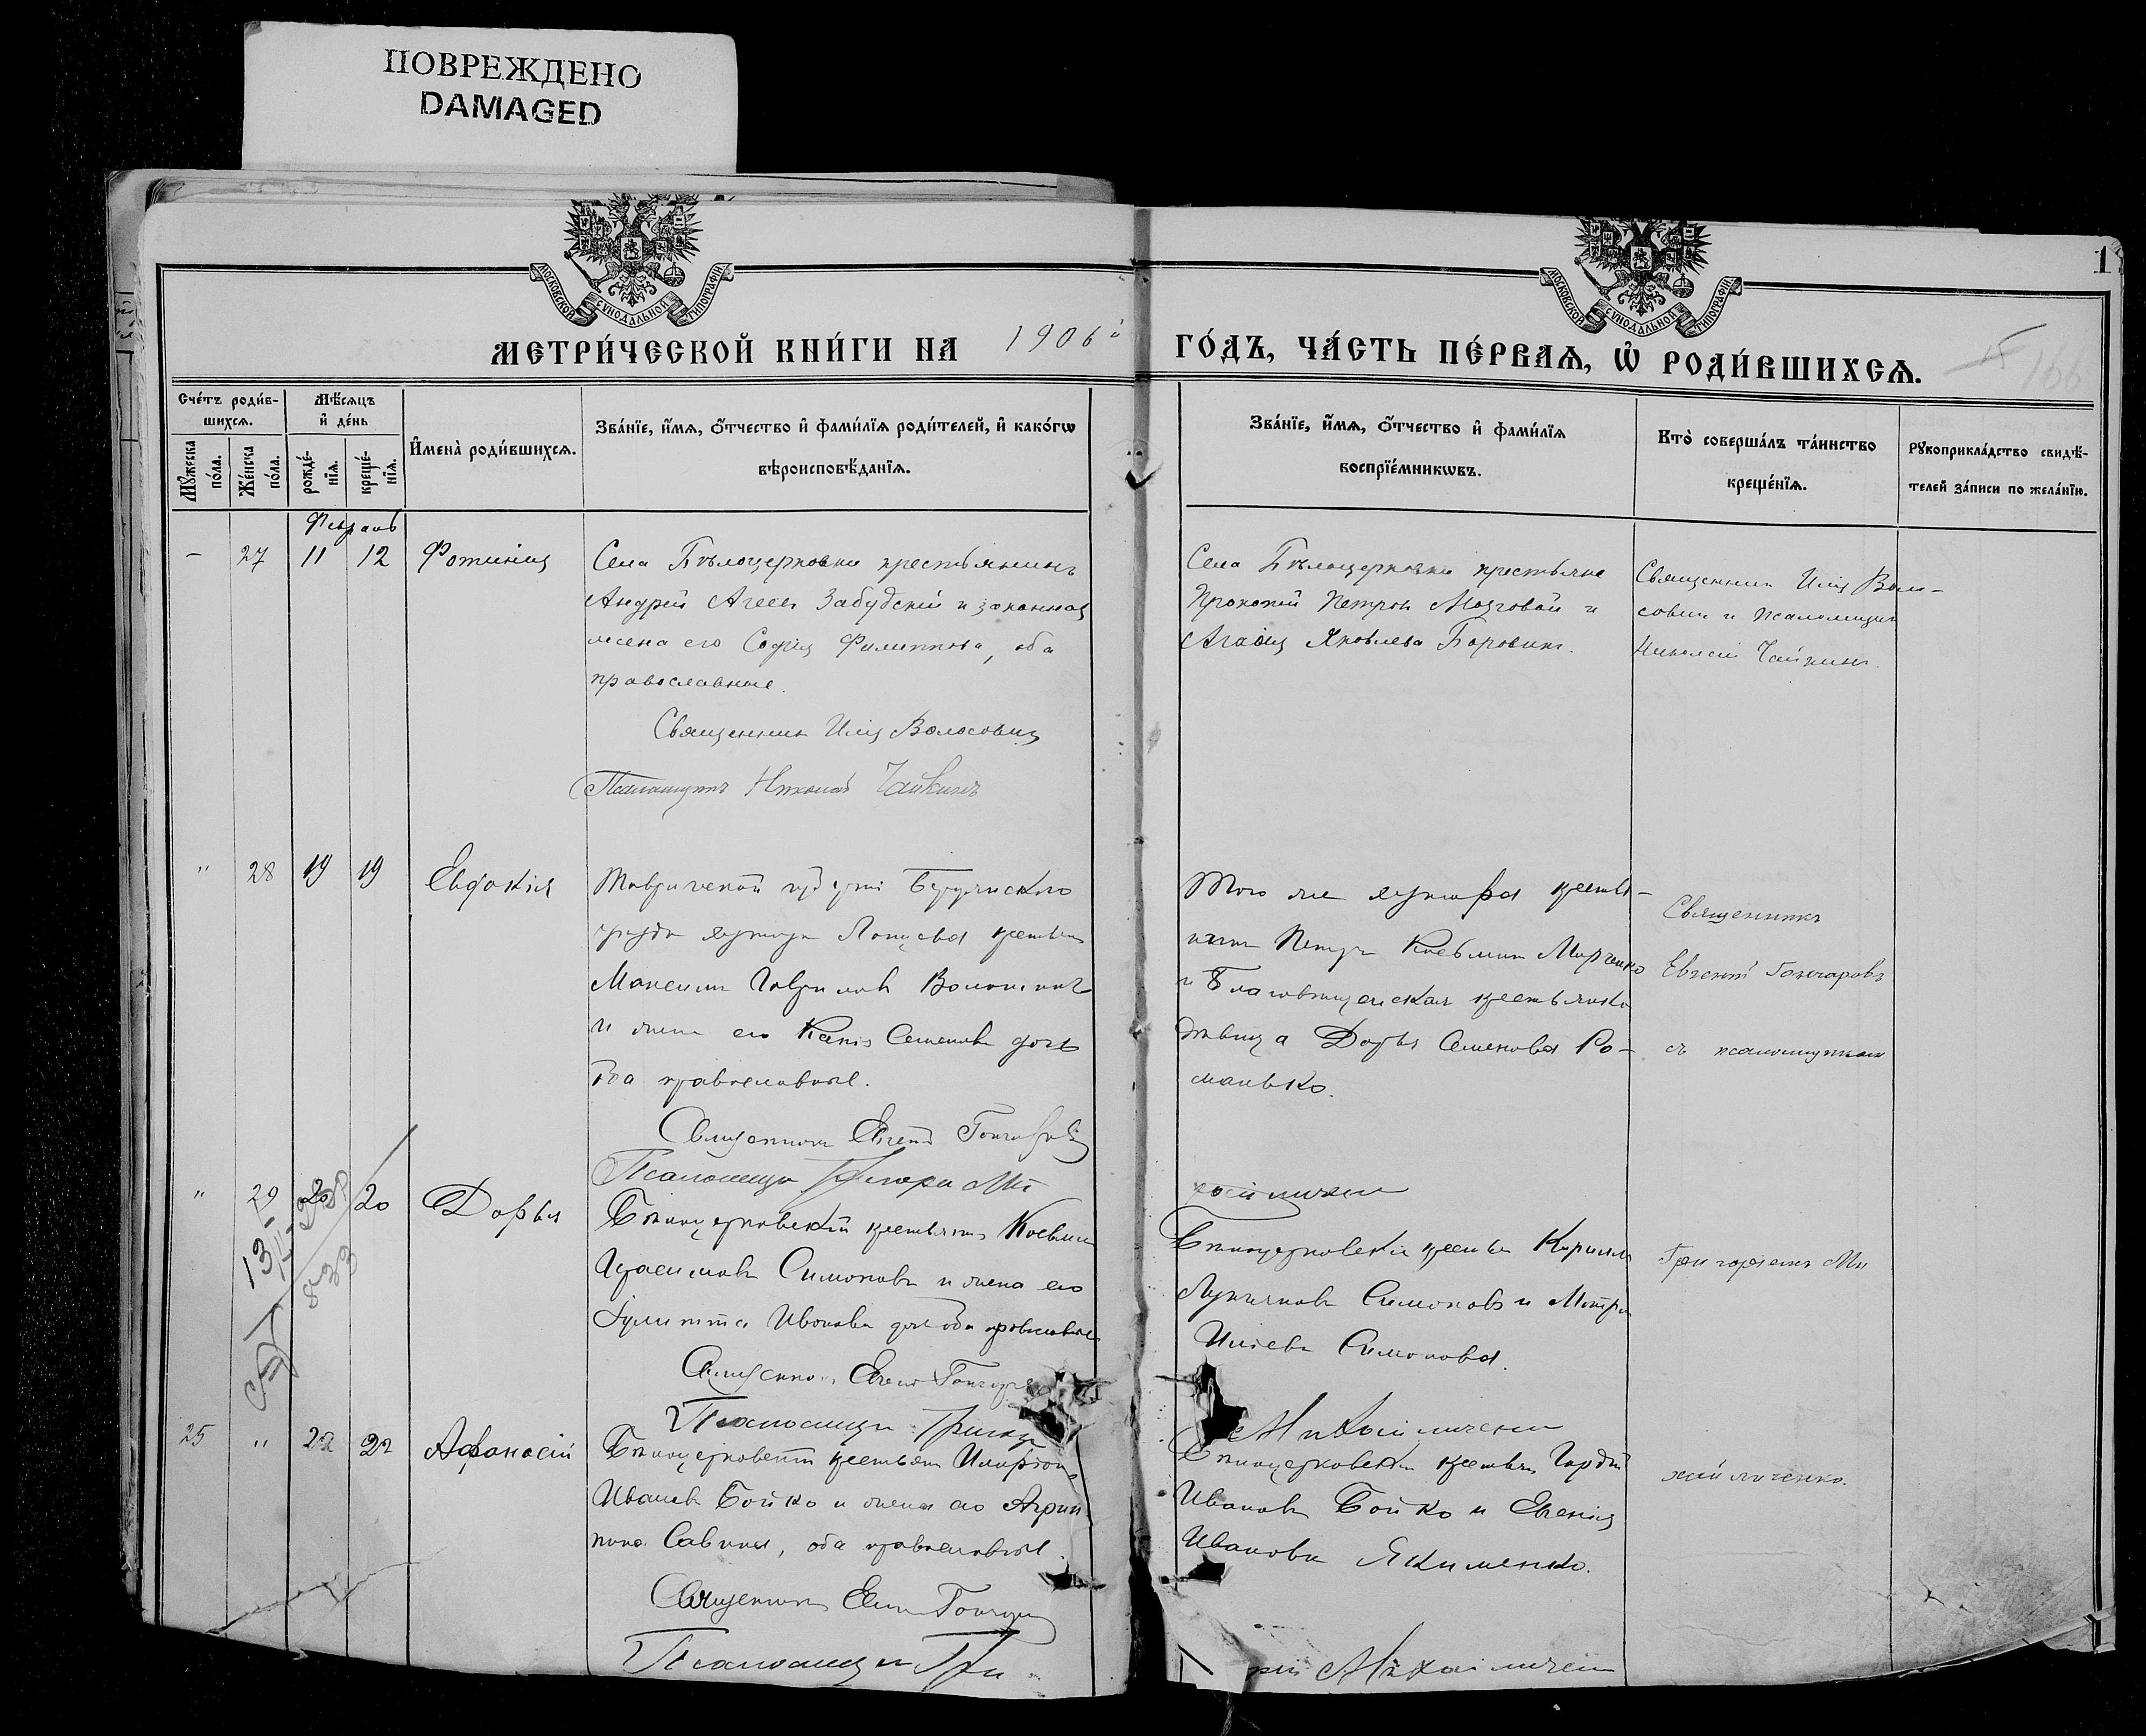 ПОВРЕЖДЕНО
DAMAGED
МОСКОВСКОЙ СѴНОДАЛЬНОЙ ТИПОГРАФІИ
МОСКОВСКОЙ СѴНОДАЛЬНОЙ ТИПОГРАФІИ
1
МЕТРИ́ЧЕСКОЙ КНИ́ГИ НА 1906й ГО́ДЪ, ЧА́СТЬ ПЕ́РВАѦ, Ѿ РОДИ́ВШИХСѦ.
166
Сче́тъ роди́в-
шихсѧ.
Мѣ́сѧцъ
и҆ де́нь
Мꙋ́жеска
по́ла.
Же́нска
по́ла.
рожде́-
нїѧ.
креще́-
нїѧ.
И҆мена̀ роди́вшихсѧ.
Зва́нїе, и҆́мѧ, ѻ҆́тчество и҆ фами́лїѧ роди́телей, и҆ како́гѡ
вѣроисповѣ́данїѧ.
Зва́нїе, и҆́мѧ, ѻ҆́тчество и҆ фами́лїѧ
воспрїе́мникѡвъ.
Кто̀ соверша́лъ та́инство
креще́нїѧ.
Рꙋкоприкла́дство свидѣ́-
телей за́писи по жела́нїю.
Февраль
- 27 11 12 Фотинія
Села Бѣлоцерковки крестьянинъ
Андрей Агеев Забудскій и законная
жена его Софія Филиппова, оба
православные.
Священник Илія Волосович
Псаломщикъ Николай Чайкинъ
Села Бѣлоцерковки крестьяне
Прокопій Петров Мозговой и
Агафія Яковлева Боровик.
Священник Илія Воло-
сович и псаломщик
Николай Чайкин.
" 28 19 19 Евдокія
Таврической губерніи Бердянскаго
уѣзда хутора
Максим Гаврилов Волошин
и жена его Семенова
оба православные.
Священник Евгеній Гончаров
Псаломщик Григорій Ми
Того же хутора кресть-
янин Петр Косьмин Марченко
и Благовѣщенская крестьянка
дѣвица Дарья Семенова Ро-
манько.
Священникъ
Евгеній Гончаровъ
съ псаломщикомъ
" 29 20 20 Дарья
13
833
Бѣлоцерковскій крестьянин Косьма
Герасимовъ Симоновъ и жена его
Іулитта Иванова оба православные
Священник Евгеній Гончаров
Псаломщик Григор
Бѣлоцерковскіе крестьяне Кирилл
Лукьяновъ Симоновъ и Матрона
Ильева Симонова.
Михайличенко
Григоріемъ Ми
25 " 22 22 Афанасій
Бѣлоцерковскій крестьянин Иларіонъ
Иванов Бойко и жена его Агрип
пина Савина, оба православные
Священник Евгеній Гончаров
Псаломщик Гри
Бѣлоцерковскіе крестьяне Гордій
Иванов Бойко и Евгенія
Иванова Якименко.
хайличенко.
рій Михайличенко